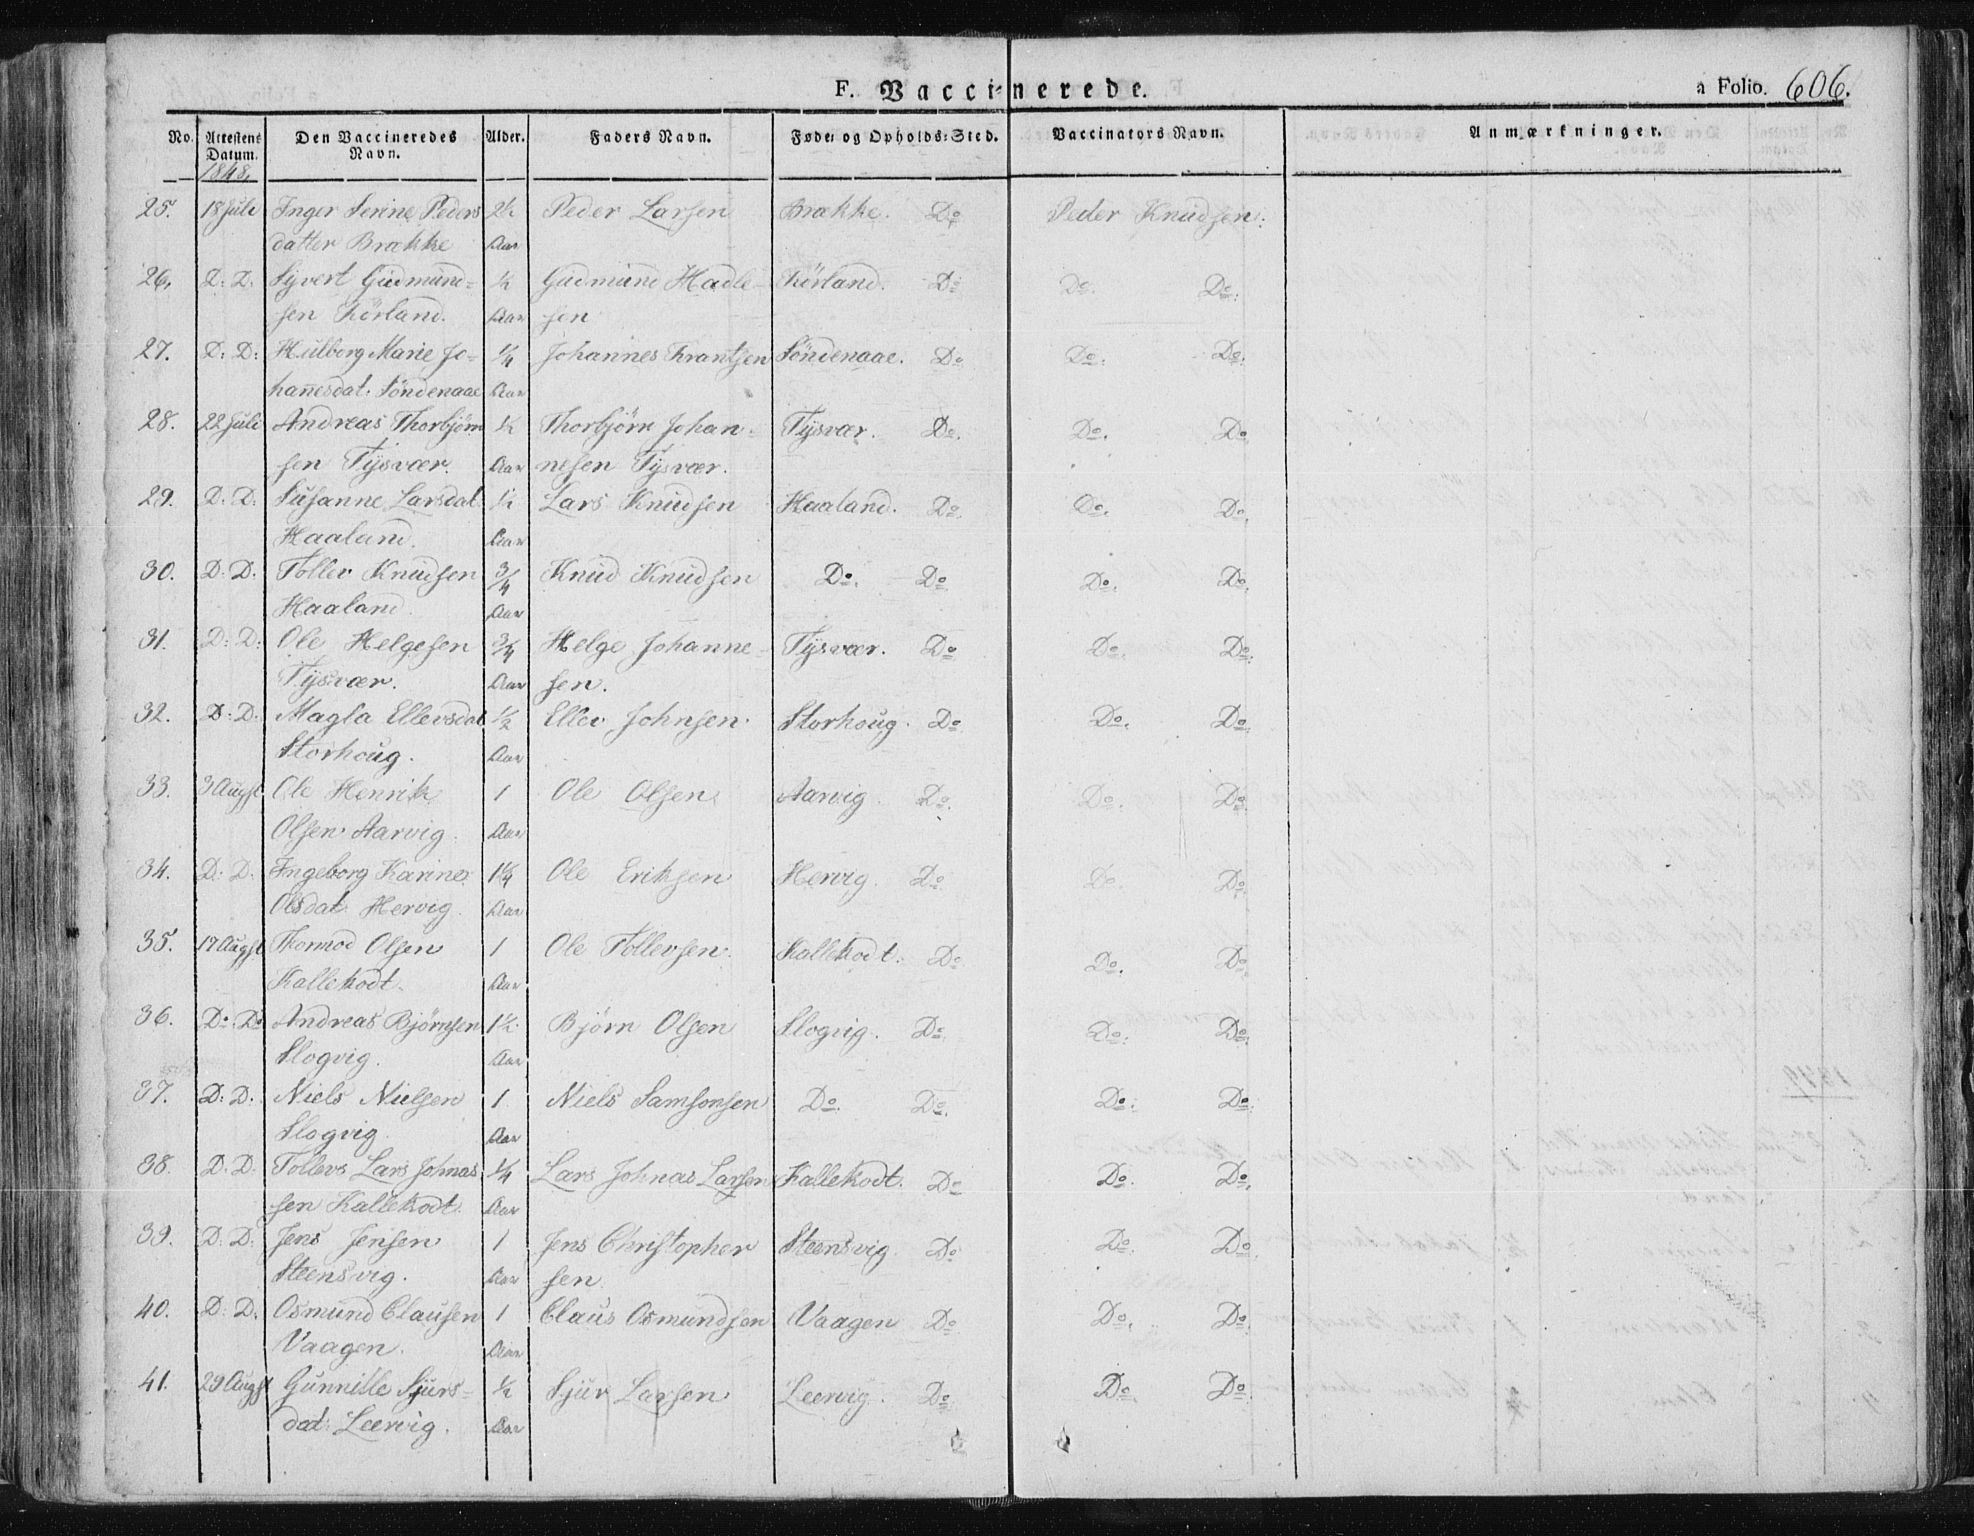 F. Vaccinerede. a Folio. 606.
No. Attestens Datum. Den Vaccineredes Navn. Alder. Faders Navn. Føde- og Opholds-Sted. Vaccinators Navn. Anmærkninger.
1848.
25. 18 Juli Inger Serine Peders 2½ Peder Larsen Brække. Do Peder Knudsen.
datter Brække Aar
26. D: D: Syvert Gudmund- ½ Gudmund Hadle- Körland. Do Do. Do.
sen Körland. Aar sen
27. D: D: Hulborg Marie Jo- ¼ Johannes Krantsen Söndenaae. Do Do. Do.
hanesdat. Söndenaae Aar
28. 22 Juli Andreas Thorbjörn ½ Thorbjörn Johan- Tysvær. Do. Do. Do.
sen Tysvær. Aar nesen Tysvær.
29. D: D: Susanne Larsdat Lars Knudsen Haaland. Do. Do. Do.
Haaland. Aar
30. D: D: Tollev Knudsen 3/4 Knud Knudsen Do. Do. Do. Do.
Haaland. Aar
31. D: D: Ole Helgesen 3/4 Helge Johanne- Tysvær. Do Do. Do.
Tysvær. Aar sen.
32. D: D: Magla Ellevsdat ½ Ellev Johnsen Storhoug. Do Do. Do.
Storhoug. Aar
33. 3 Augst Ole Henrik 1 Ole Olsen Aarvig. Do. Do. Do.
Olsen Aarvig. Aar
34. D: D: Ingeborg Karine 1¼ Ole Eriksen Hervig. Do Do. Do.
Olsdat Hervig. Aar
35. 17 Augst Thormod Olsen 1 Ole Tollevsen. Kallekodt. Do Do. Do.
Kallekodt. Aar
36. Do. Do Andreas Björnsen 1½ Björn Olsen Slogvig. Do. Do. Do.
Slogvig. Aar
37. D: D: Niels Nielsen 1 Niels Samsonsen Do. Do. Do. Do.
Slogvig Aar
38. D: D: Tollevs Lars Johnas ¼ Lars Johnas Larsen Kallekodt. Do Do. Do.
sen Kallekodt. Aar
39. D: D: Jens Jensen 1 Jens Christopher Steensvig Do Do. Do.
Steensvig. Aar sen
40. D: D: Osmund Clausen 1 Claus Osmundsen Vaagen Do Do. Do.
Vaagen. Aar
41. 29 Augst Gunnille Sjurs- ½ Sjur Larsen Leervig. Do. Do. Do.
dat: Leervig. Aar